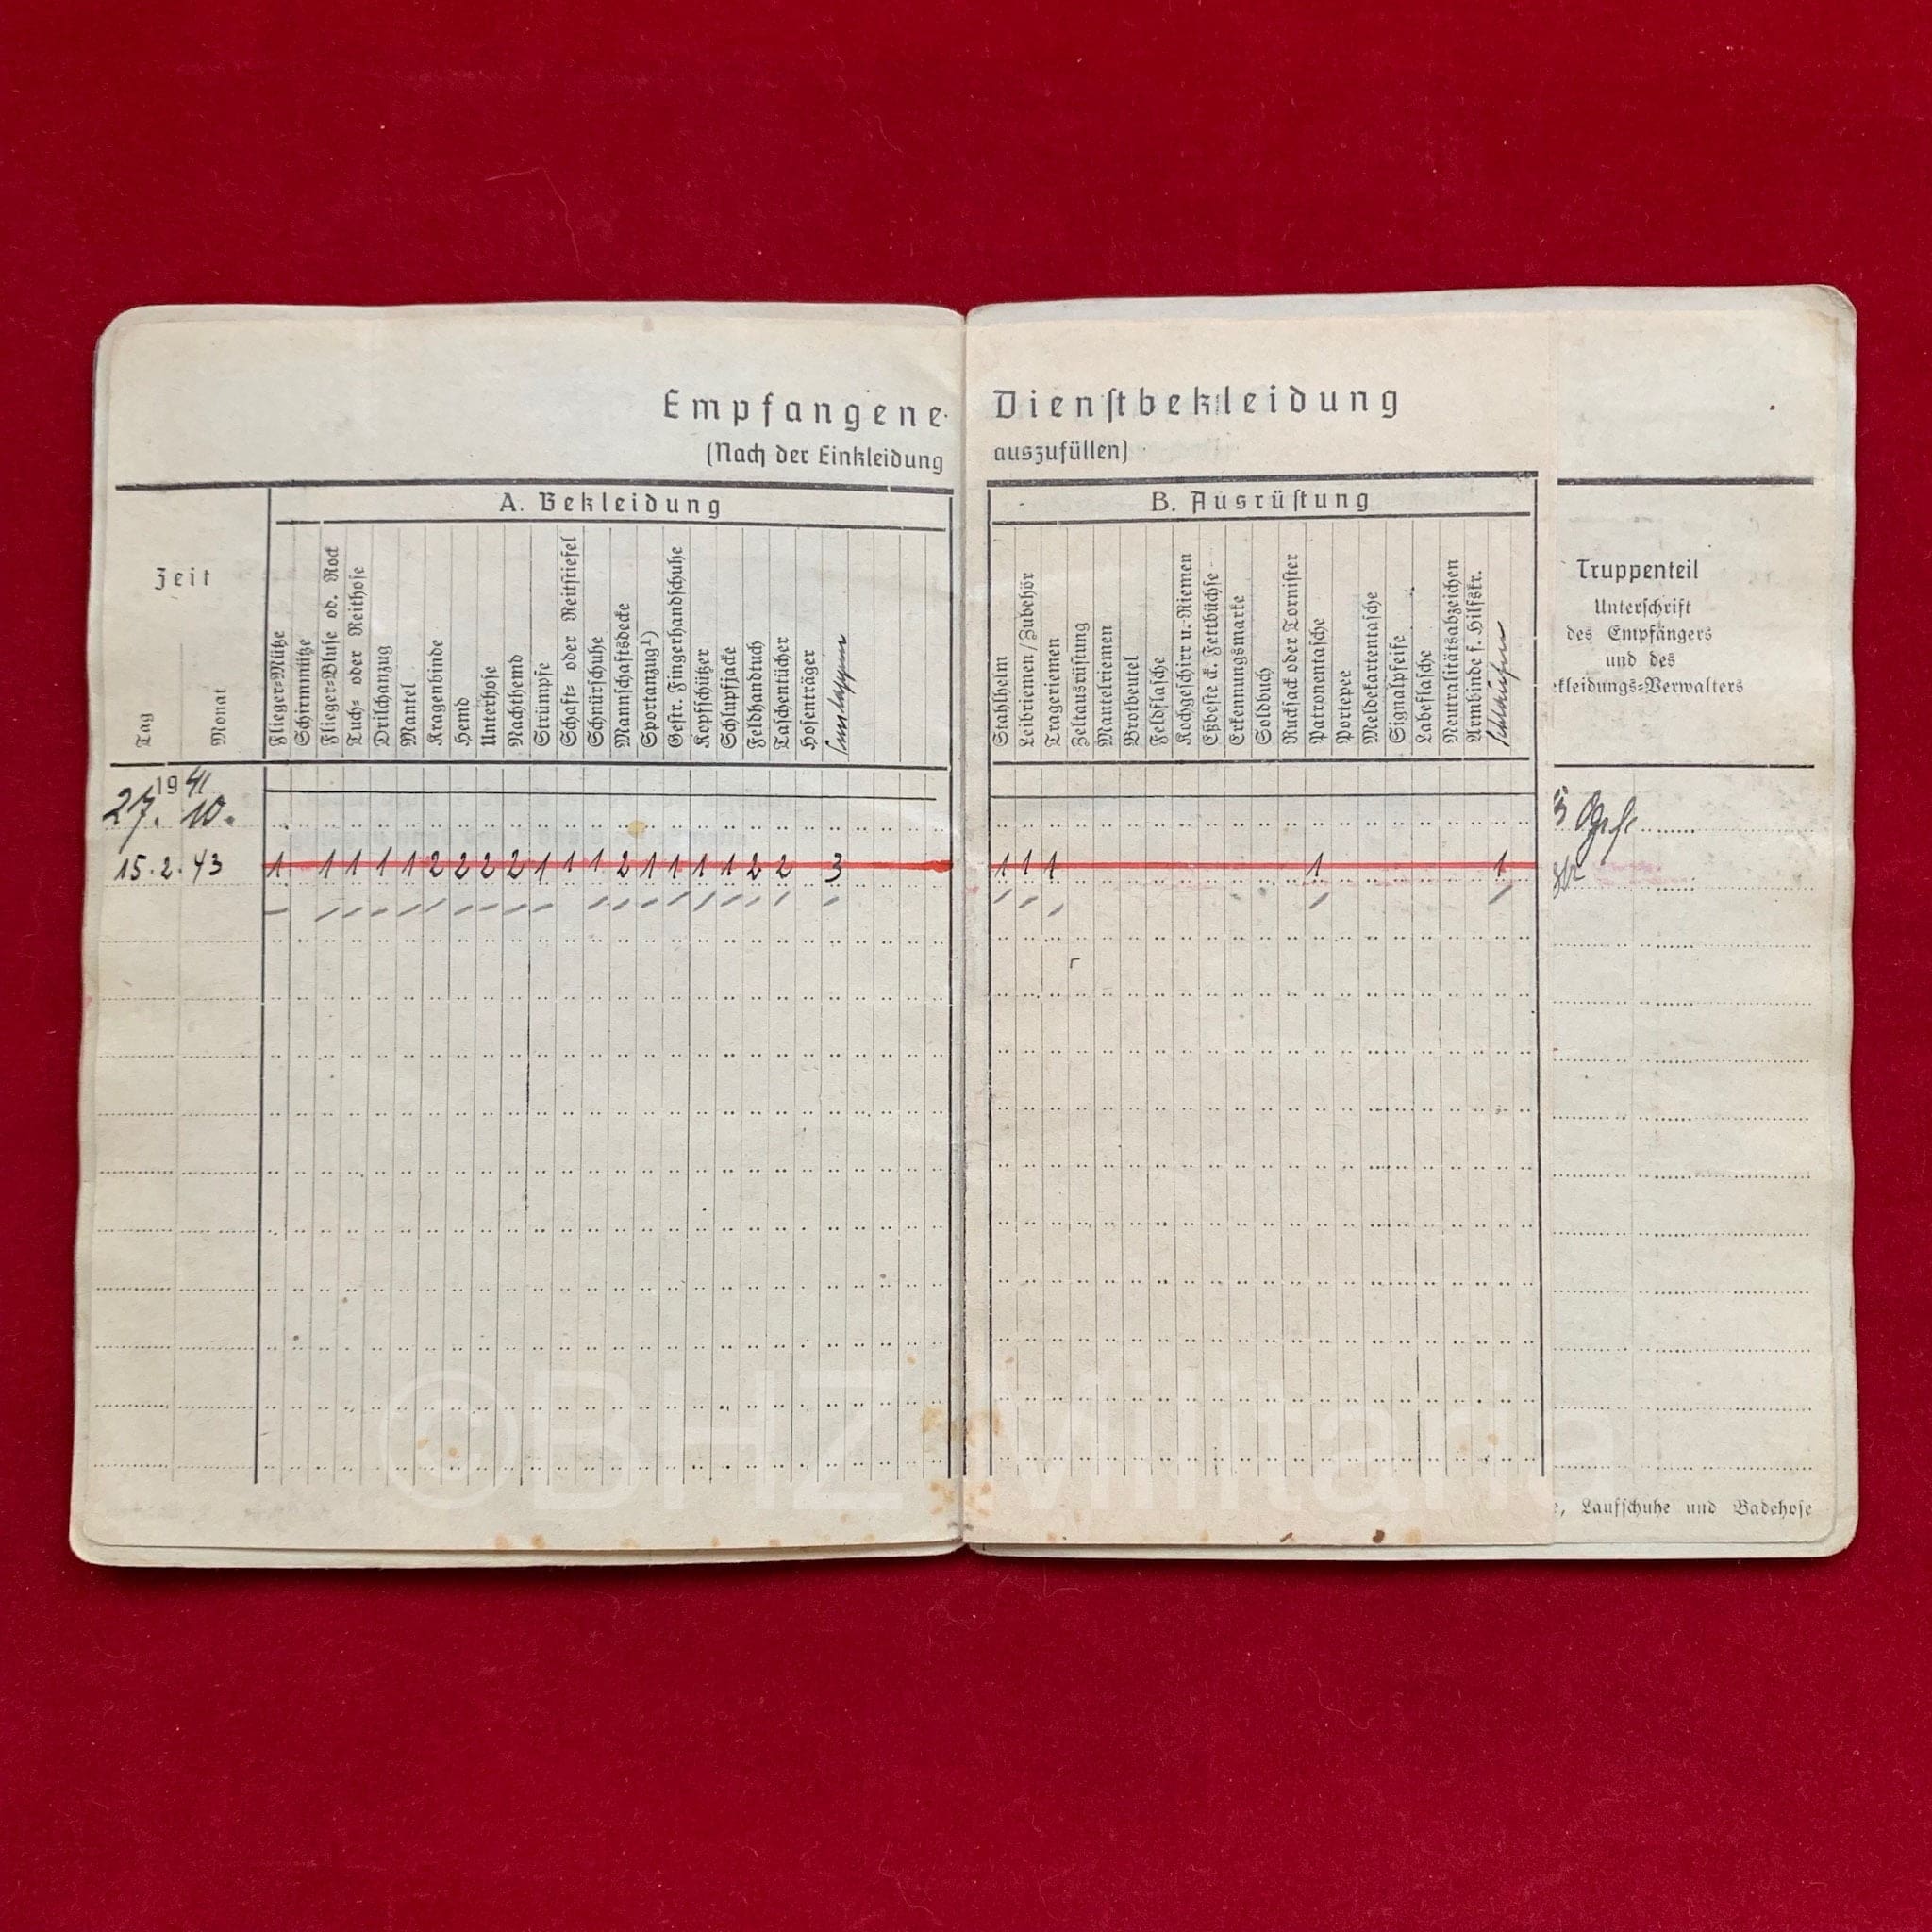 Empfangene Dienstbekleidung
(Nach der Einkleidung auszufüllen)
A. Bekleidung
B. Ausrüstung
Zeit
Tag
Monat
Flieger-Mütze
Schirmmütze
Flieger-Bluse od. Rock
Tuch- oder Reithose
Drilchanzug
Mantel
Kragenbinde
Hemd
Unterhose
Nachthemd
Strümpfe
Schaft- oder Reitstiefel
Schnürschuhe
Mannschaftsdecke
Sportanzug¹)
Gestr. Fingerhandschuhe
Kopfschützer
Schlupfjacke
Feldhandtuch
Taschentücher
Hosenträger
Stahlhelm
Leibriemen/Zubehör
Trageriemen
Zeltausrüstung
Mantelriemen
Brotbeutel
Feldflasche
Kochgeschirr u.-Riemen
Eßbeste ck. Fettbüchse
Erkennungsmarke
Soldbuch
Rucksack oder Tornister
Patronentasche
Portepee
Meldekartentasche
Signalpfeife
Labeflasche
Neutralitätsabzeichen
Armbinde f. Hilfskr.
Truppenteil
Unterschrift
des Empfängers
und des
ekleidungs-Verwalters
1941
27. 10.
15. 2. 43 1 1 1 1 1 2 2 2 2 1 1 1 2 1 1 1 1 2 2 3 1 1 1 1 1
e, Laufschuhe und Badehose
©BHZ Militaria